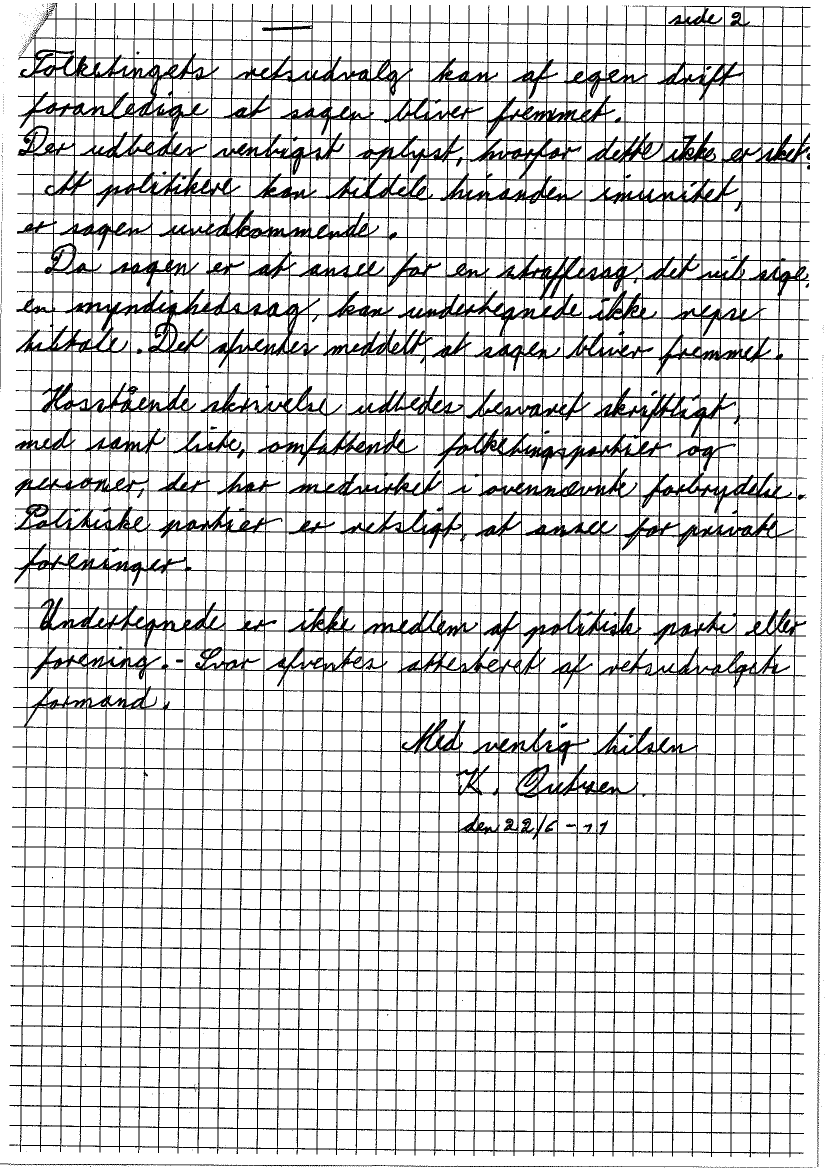 side 2
Folketingets retsudvalg kan af egen drift
foranledige at sagen bliver fremmet.
Der udbedes venligst oplyst, hvorfor dette ikke er sket.
At politikere kan tildele hinanden imunitet,
er sagen uvedkommende.
Da sagen er at ansee for en straffesag, det vil sige,
en myndighedssag, kan undertegnede ikke
tiltale. Det afventes meddelt, at sagen bliver fremmet.
Hosstående skrivelse udbedes besvaret skriftligt,
med samt liste, omfattende folketingspartier og
personer, der har medvirket i ovennævnte forbrydelse.
Politiske partier er retsligt, at ansee for private
foreninger.
Undertegnede er ikke medlem af politisk parti eller
forening. - Svar afventes attesteret af retsudvalgets
formand.
Med venlig hilsen
K.
den 22/6 - 11